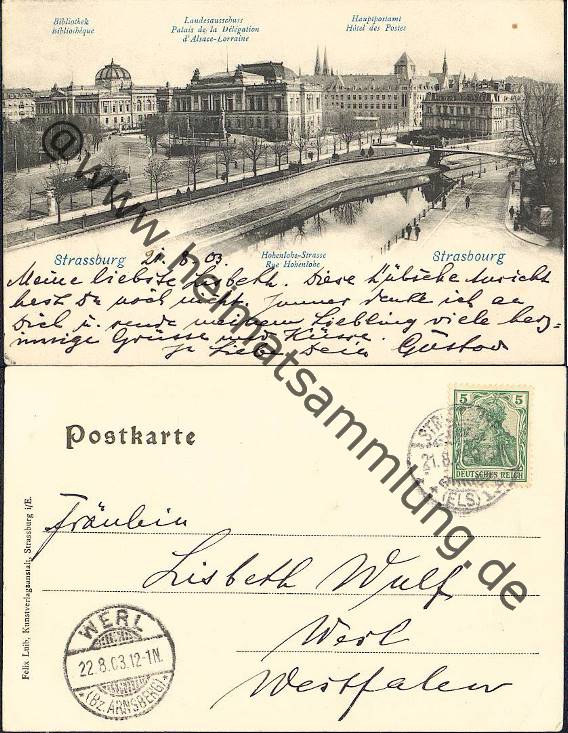 Bibliothek
Bibliothèque
Landesausschuss
Palais de la Délégation
d'Alsace-Lorraine
Hauptpostamt
Hôtel des Postes
Strassburg
21.8.03.
Hohenlohe-Strasse
Rue Hohenlohe
Strasbourg
Meine liebste Lisbeth. Diese hübsche Ansicht
hast Du noch nicht. Immer denke ich an
Dich u. sende meinem Liebling viele herz-
innige Grüsse und Küsse.
Je liebt Dein Gustav
@www.heimatsammlung.de
Postkarte
5 5
DEUTSCHES REICH
21.8.
(ELS)
Fräulein
Lisbeth Wulf
Werl
Westfalen
WERL
22.8.03.12-1N.
*(Bz.ARNSBERG)*
Felix Luib, Kunstverlagsanstalt, Strassburg i/E.